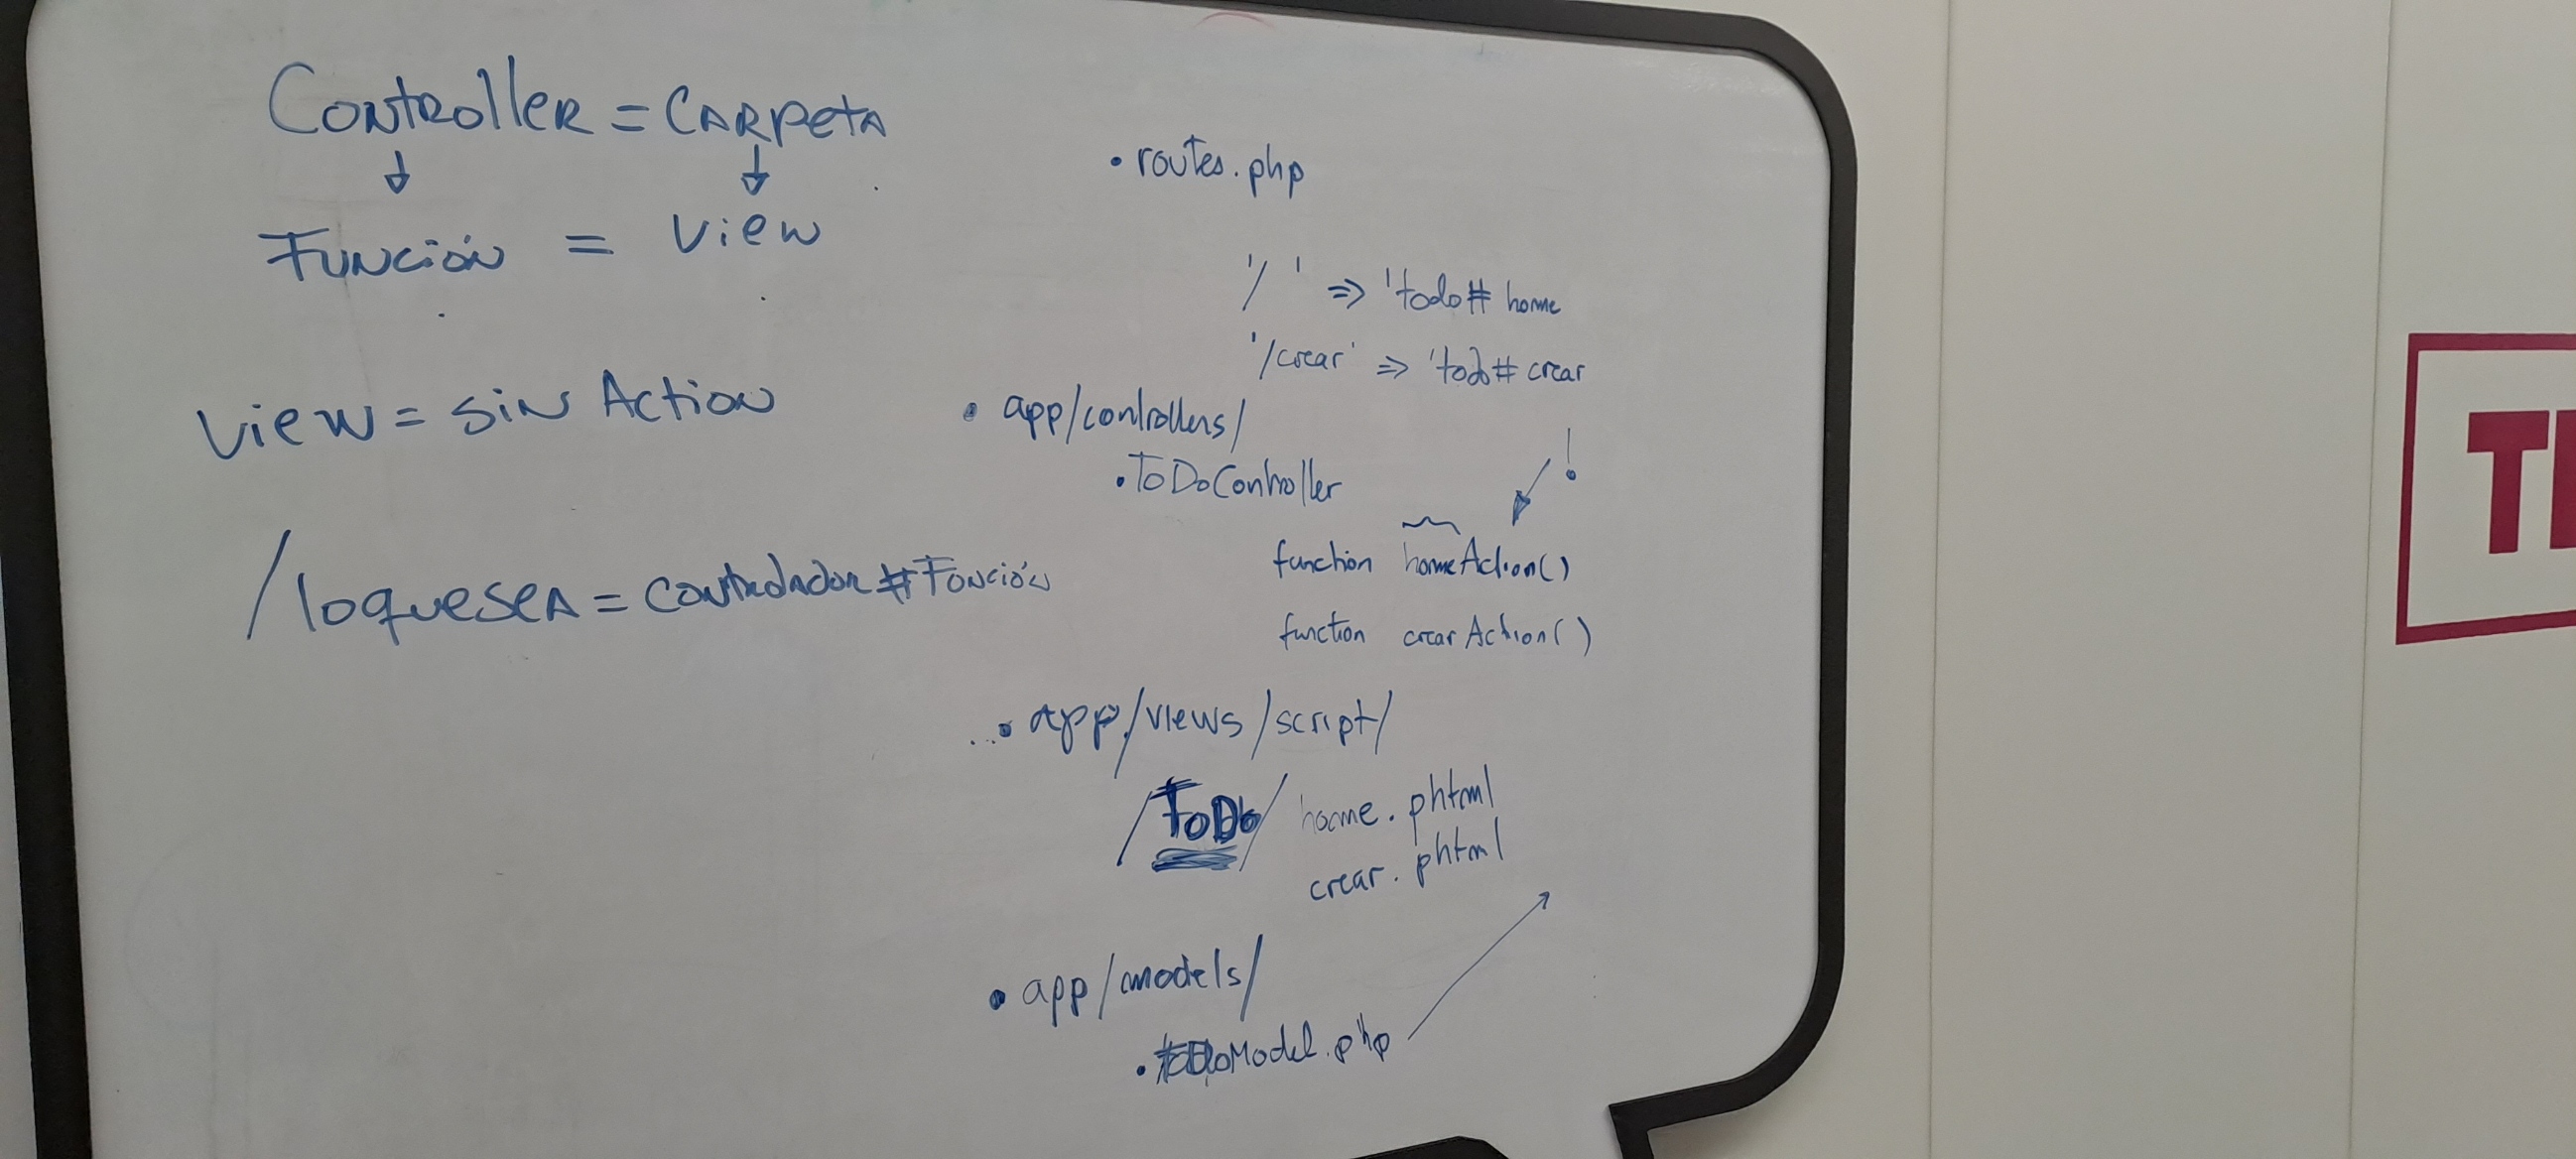 Controller = Carpeta
Función = View
View = sin Action
/loquesea = controlador#Función
• routes.php
'/ ' => 'todo# home
'/crear' => 'todo# crear
• app/controllers/
• ToDoController
!
function homeAction()
function crearAction()
• app/views/script/
/ToDo/ home.phtml
crear.phtml
• app/models/
• ToDoModel.php